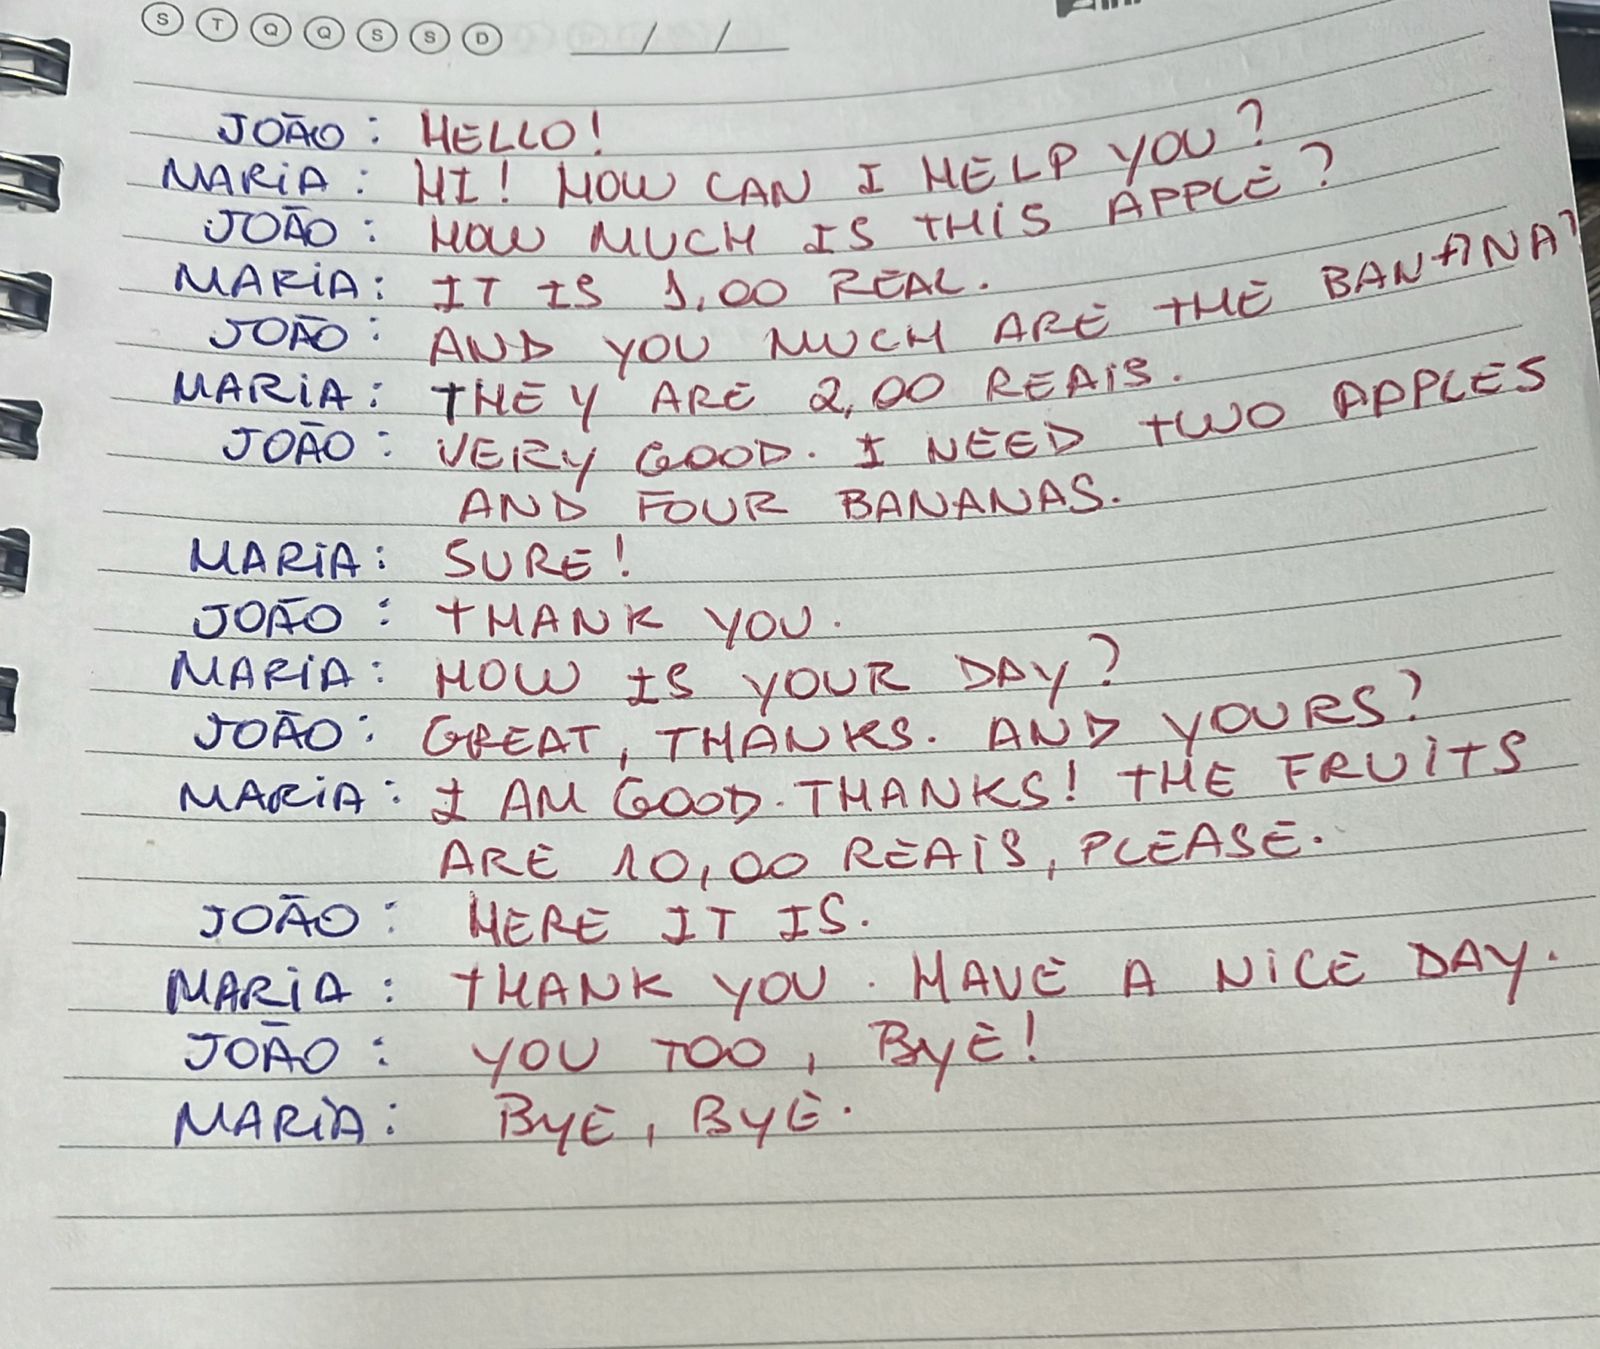 S T Q Q S S D __/__/__
JOÃO: HELLO!
MARIA: HI! HOW CAN I HELP YOU?
JOÃO: HOW MUCH IS THIS APPLE?
MARIA: IT IS 1,00 REAL.
JOÃO: AND YOU MUCH ARE THE BANANA?
MARIA: THEY ARE 2,00 REAIS.
JOÃO: VERY GOOD. I NEED TWO APPLES
AND FOUR BANANAS.
MARIA: SURE!
JOÃO: THANK YOU.
MARIA: HOW IS YOUR DAY?
JOÃO: GREAT, THANKS. AND YOURS?
MARIA: I AM GOOD. THANKS! THE FRUITS
ARE 10,00 REAIS, PLEASE.
JOÃO: HERE IT IS.
MARIA: THANK YOU. HAVE A NICE DAY.
JOÃO: YOU TOO, BYE!
MARIA: BYE, BYE.